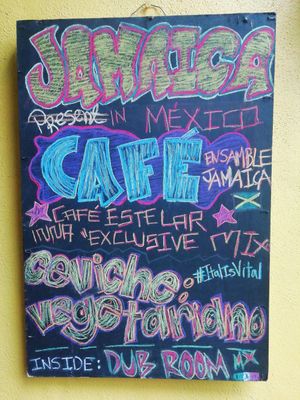 JAMAICA
Present IN MÉXICO
CAFÉ
ENSAMBLE
JAMAICA
CAFÉ ESTELAR
"EXCLUSIVE MIX
ceviche:
#ItalIsVital
vegetariano
INSIDE: DUB ROOM MX